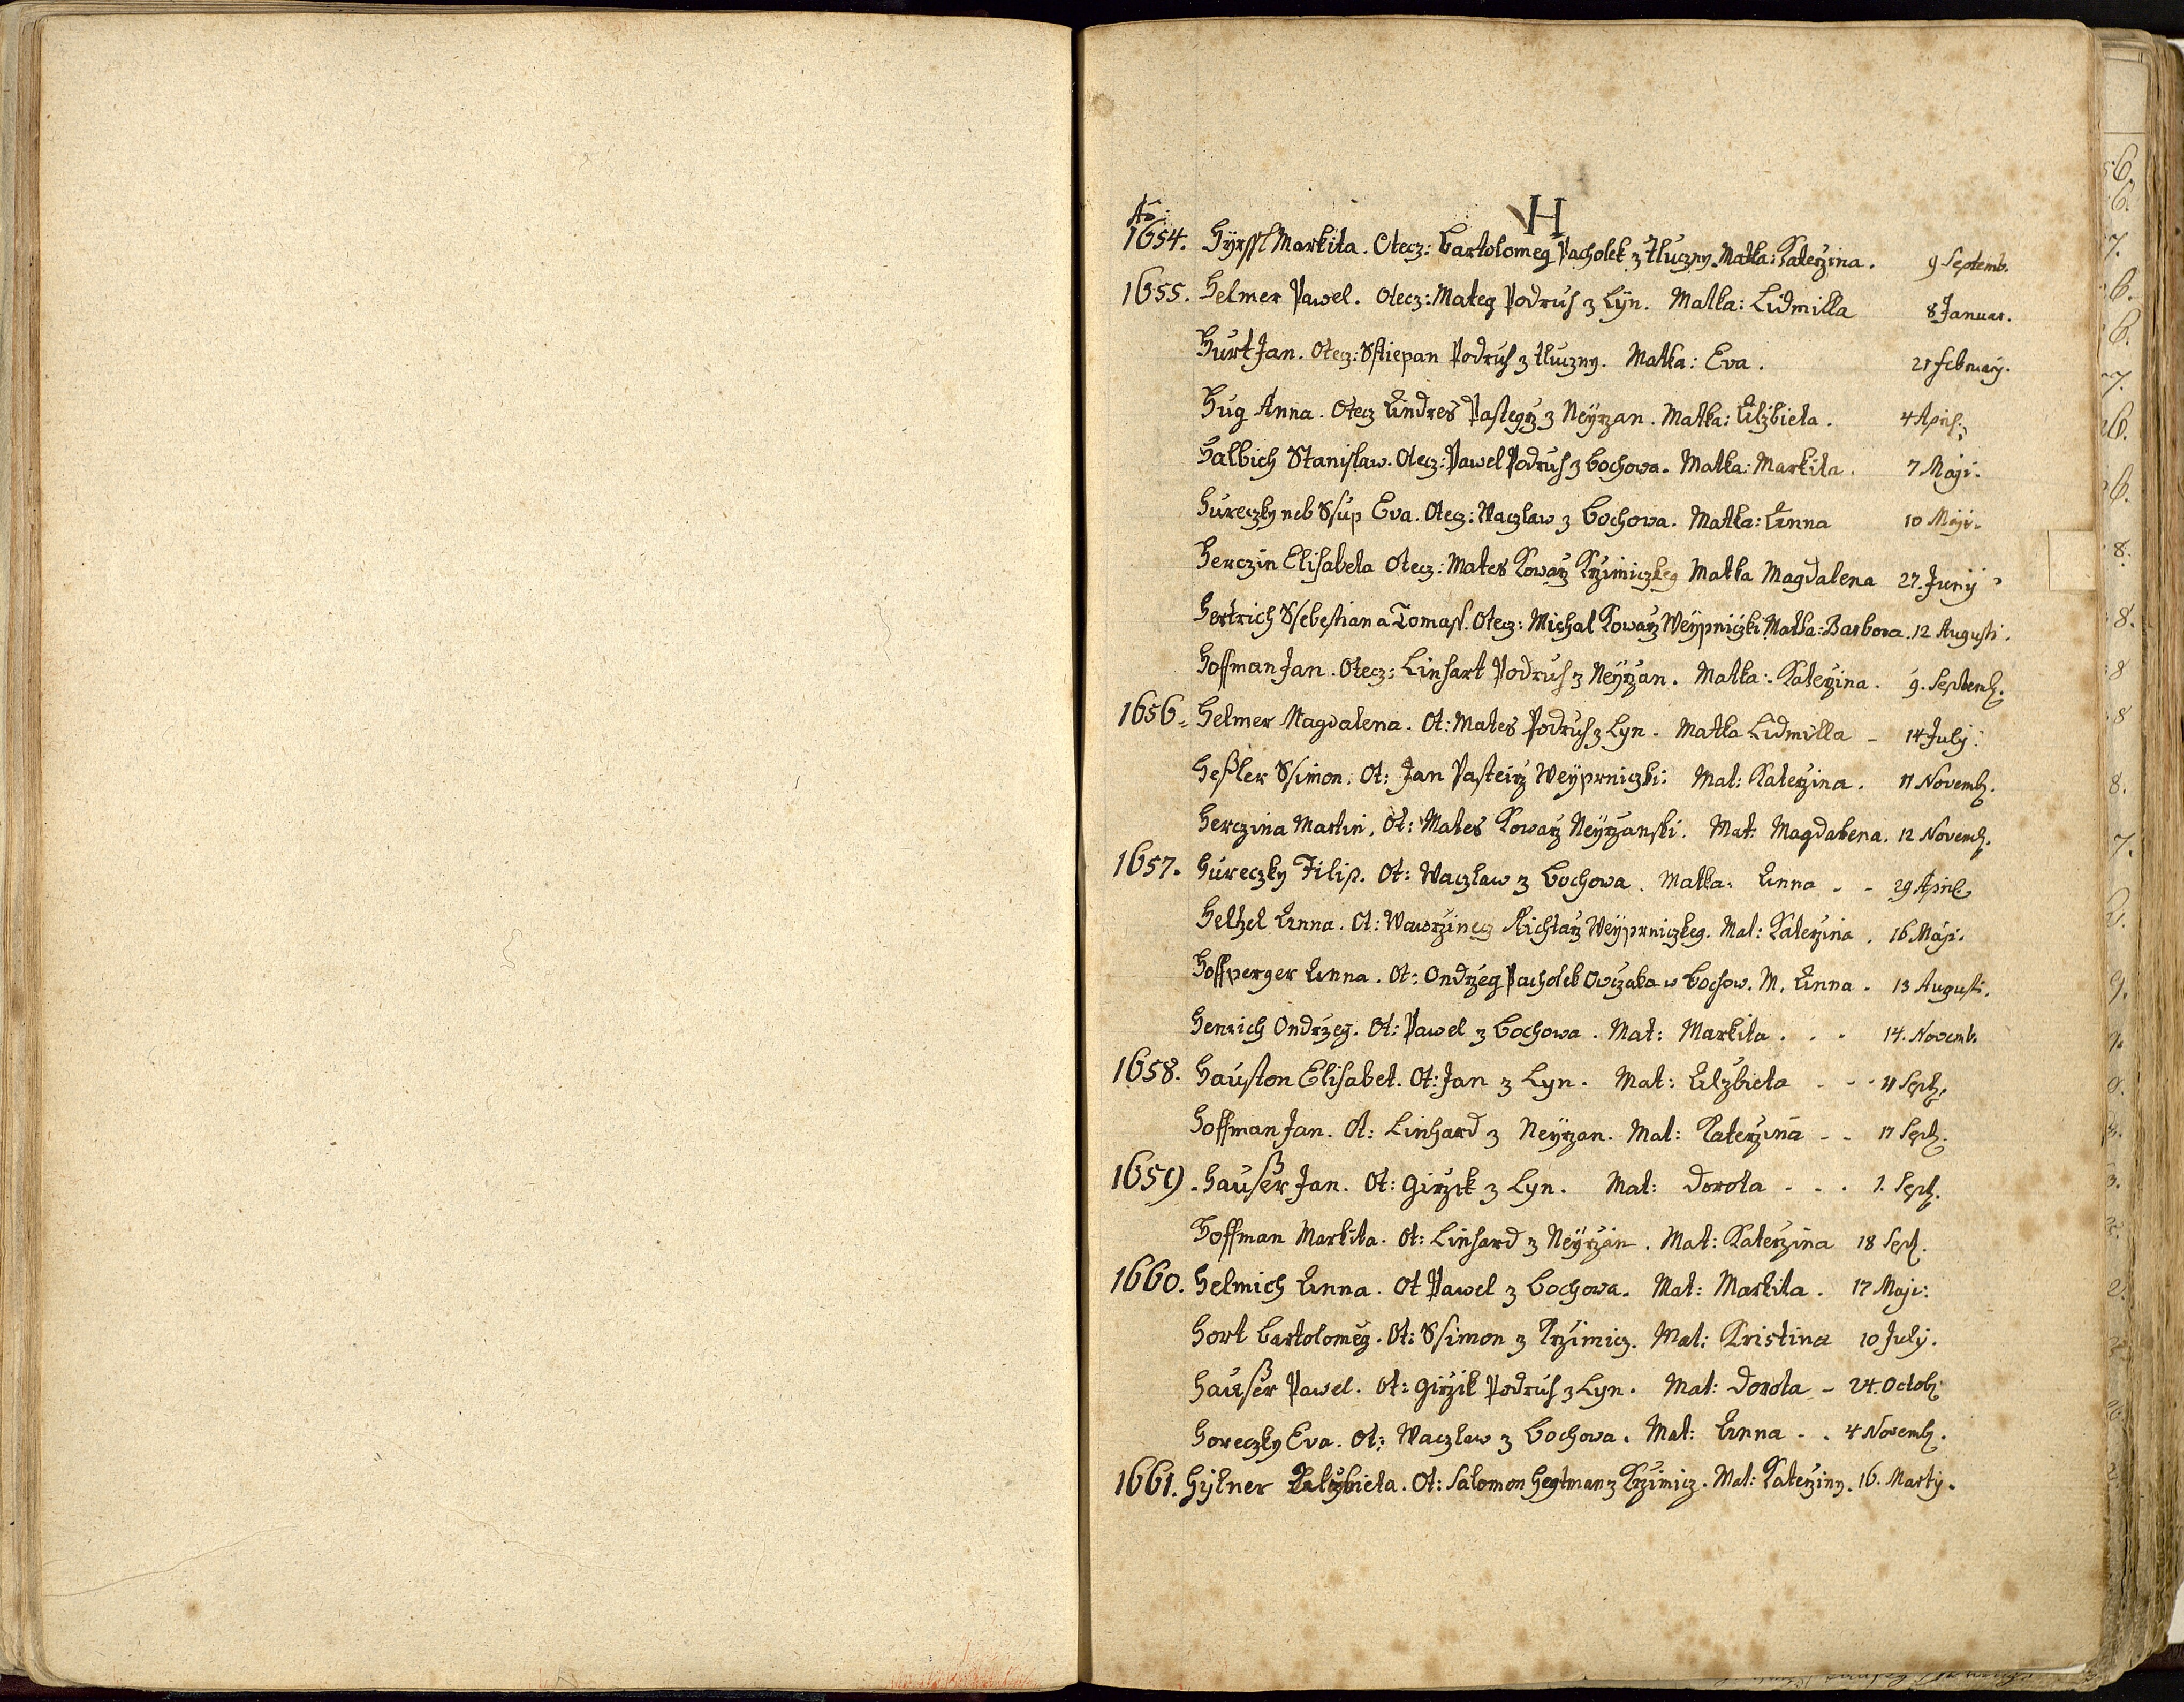 H
Ao:
1654. Hyrssl Markita. Otecz: Bartolomeg Pacholek z Tluczny. Matka: Katerzina. 9 Septemb.
1655. Helmer Pawel. Otecz: Mateg Podruh z Lÿn. Matka: Lidmilla 8 Januar.
Hurt Jan. Otecz: Sstiepan Podruh z tluczny. Matka: Eva. 21 february.
Hug Anna. Otecz Endres Pastegrz z Neÿrzan. Matka: Elzbieta. 4 April:
Halbich Stanislaw. Otecz: Pawel Podruh z Bochowa. Matka: Markita. 7 Maji.
Hureczky neb Ssup Eva. Otecz: Waczlaw z Bochowa. Matka: Anna 10 Maji.
Herczin Elisabeta Otecz: Mates Kowarz Krzimiczkeg Matka Magdalena 27. Junÿ
Hertrich Ssebestian a Tomass. Otecz: Michal Kowarz Weÿpniczki Matka: Barbora. 12 Augusti.
Hoffman Jan. Otecz: Linhart Podruh z Neÿrzan. Matka: Katerzina. 9. Septemb.
1656. Helmer Magdalena. Ot: Mates Podruh z Lyn. Matka Lidmilla - 14 July.
Heßler Ssimon. Ot: Jan Pasteirz Weÿprniczki: Mat: Katerzina. 11 Novemb.
Herczina Martin. Ot: Mates Kowarz Neÿrzanski. Mat: Magdalena. 12 Novemb.
1657. Hureczky Filip. Ot: Waczlaw z Bochowa. Matka: Anna - - 29 April
Helhel Anna. Ot: Wawrzinecz Richtarz Weÿprniczkeg. Mat: Katerzina. 16 Maji.
Hoffperger Anna. Ot: Ondrzeg Pacholek Owczaka w Bochow. M. Anna. 13 Augusti.
Henrich Ondrzeg. Ot: Pawel z Bochowa. Mat: Markita. . . 14. Novemb.
1658. Hauston Elisabet. Ot: Jan z Lyn. Mat: Elzbieta - - - 11 Septb.
Hoffman Jan. Ot: Linhard z Neÿrzan. Mat: Katerzina - - 17 Septb.
1659. Haußer Jan. Ot: Girzik z Lyn. Mat: Dorota - - . 1. Septb.
Hoffman Markita. Ot: Linhard z Neÿrzan. Mat: Katerzina 18 Sept.
1660. Helmich Anna. Ot Pawel z Bochowa. Mat: Markita. 17 Maji:
Hort Bartolomeg. Ot: Ssimon z Krzimicz. Mat: Kristina 10 July.
Haußer Pawel. Ot: Girzik Podruh z Lyn. Mat: Dorota - 24. Octob:
Horeczky Eva. Ot: Waczlaw z Bochowa. Mat: Anna - . 4 Novemb.
1661. Hÿlner Elzbieta. Ot: Salomon Hegtman z Krzimicz. Mat: Katerziny. 16. Marty.